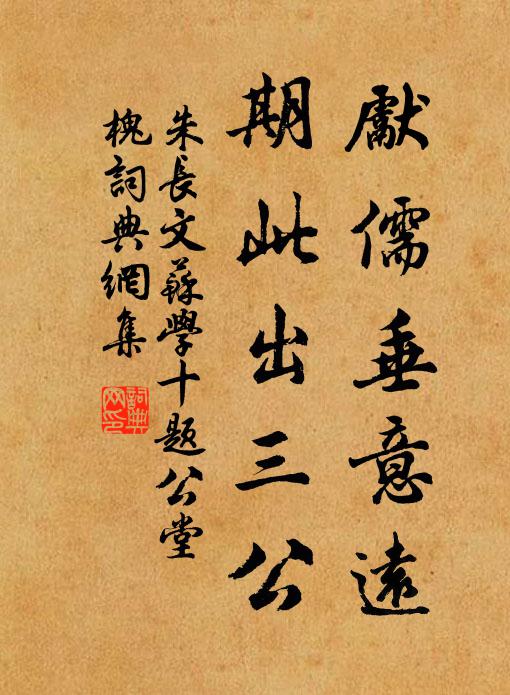 獻儒垂意遠
期此出三公
朱長文蘇學十題公堂
槐詞典網集
詞典
网印